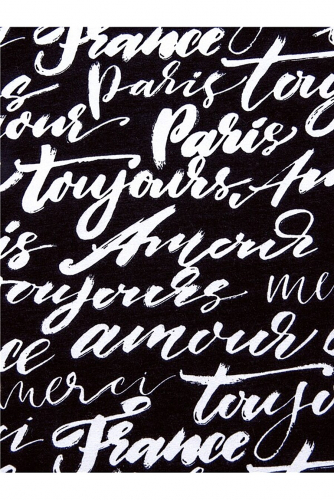 France
Paris touj
s
our Paris
toujours, Am
is Amour
oujours me
ce amour
merci toujo
ci France